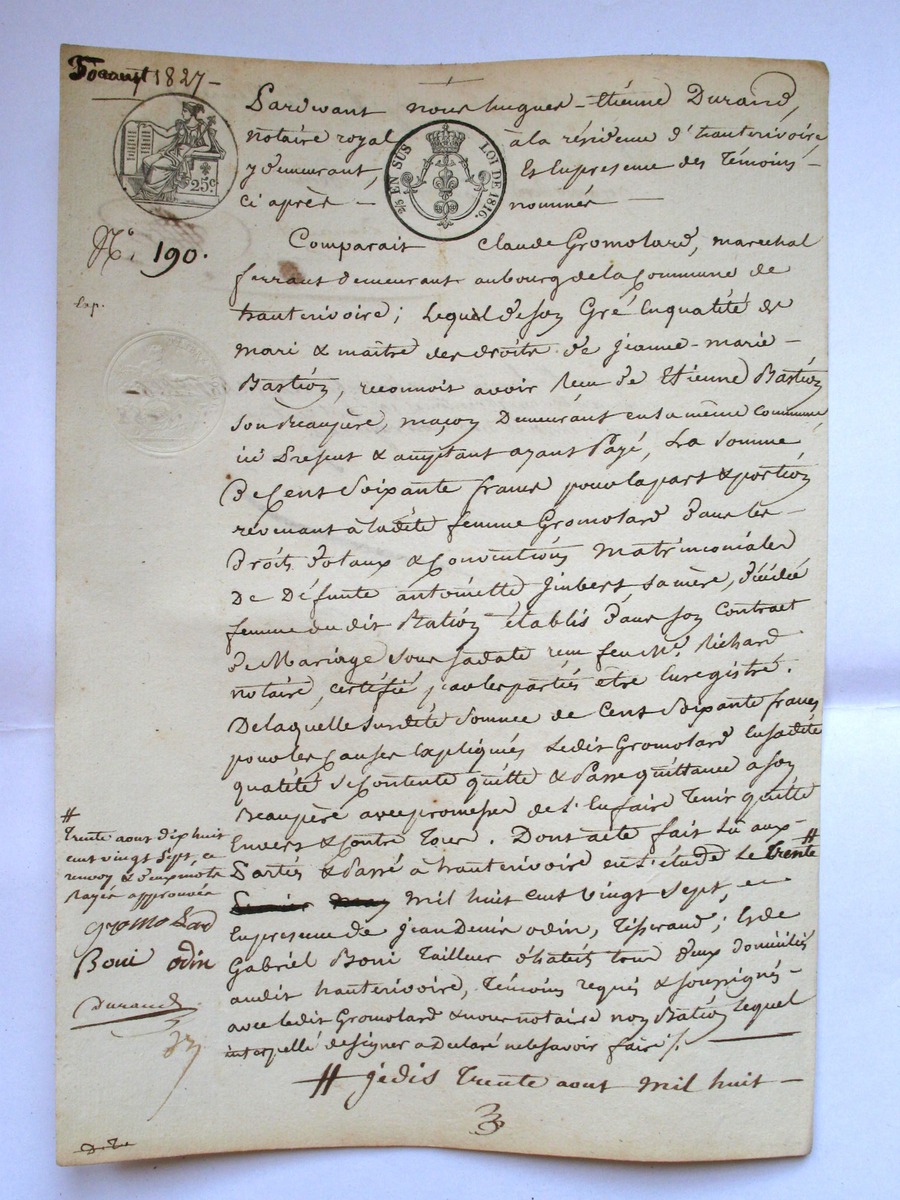 30 aoust 1827 -
Pardevant nous hugues - Etiénne Durand,
notaire royal à la résidence d'hauterivoire
y demeurant, Et En presence des Témoins -
ci après - nommés -
25c.
2/5 EN SUS LOI DE 1816.
N° 190.
Exp.
Comparait Claude Gromolard, marechal
ferrant demeurant au bourg de la Commune de
hauterivoire; Lequel de son Gré En qualité de
mari & maître des droits de jeanne - marie -
Bastion, reconnoit avoir Recu de Etienne Bastion
son Beaupère, maçon Demeurant en la même commune
ici Present & acceptant ayant Payé, La Somme
De Cent Soixante francs pour la part & portion
revenant à ladite femme Gromolard Dans les -
Droits Dotaux & Conventions matrimoniales
De Défunte antoinette jimbert, sa mère, Décédée
femme du dit Bation établis Dans son Contract
De Mariage sous sa date recu feu Me. Richard
notaire, certifié par les partiés etre Enregistré.
De laquelle susdite somme de Cent Soixante francs
pour les Causes Expliqués Ledit Gromolard En sadite
qualité se Contente quitte & Passe quittance a son
Beaupère avec promesse de L'En faire Tenir quitte
Envers & Contre Tous. Dont acte fait Lu aux -
Partiés & Passé à hauterivoire en L'étude Le trente #
mil huit cent vingt sept, -
En presence de jean Denis odin, Tisserand; Et de
Gabriel Boni Tailleur d'habits tous Deux Domiciliés
audit hauterivoire, Témoins requis & soussignés -
avec ledit Gromolard & nous notaire non Bation Lequel
interpellé de signer a Declaré ne le savoir faire /.
# je dis Trente aout mil huit -
#
Trente aout dix huit
cent vingt sept, ce
renvoy & Deux mots
Rayés approuvés
gromolard
Boni odin
Durand